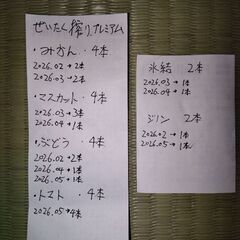 ぜいたく搾りプレミアム
・みかん・4本
2026.02→2本
2026.03→2本
・マスカット・4本
2026.03→3本
2026.04→1本
・ぶどう・4本
2026.02→2本
2026.04→1本
2026.05→1本
・トマト 4本
2026.05→4本
氷結 2本
2026.03→1本
2026.04→1本
ジン 2本
2026.02→1本
2026.05→1本